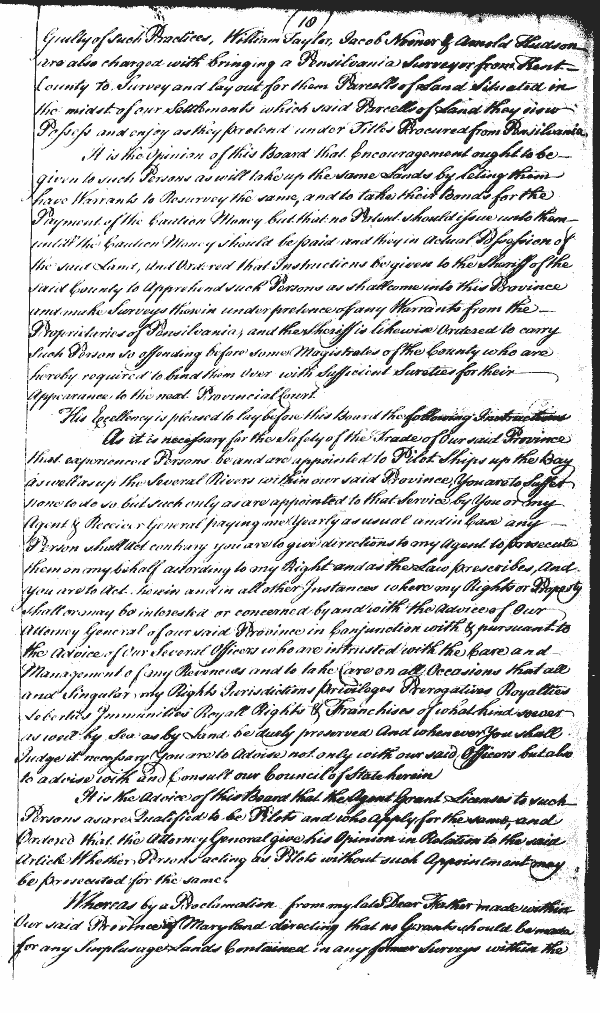 (18)
Guilty of such Practices, William Taylor, Jacob Nomer & Arnold Hudson
are also charged with bringing a Pensilvania Surveyor from Kent
County to Survey and lay out for them Parcells of Land Situated in
the midst of our Settlements which said Parcells of Land they now
Possess and enjoy as they pretend under Titles Procured from Pensilvania
It is the Opinion of this Board that Encouragement ought to be
given to such Persons as will take up the same Lands by leting them
have Warrants to Resurvey the same, and to take their Bonds for the
Payment of the Caution Money but that no Patent should issue unto them
untill the Caution Money should be paid and they in Actual Possession of
the said Land, And Ordered that Instructions be given to the Sheriff of the
said County to Apprehend such Persons as shall come into this Province
and make Surveys therein under pretence of any Warrants from the
Proprietaries of Pensilvania; and the Sheriff is likewise Ordered to carry
Such Person so offending before some Magistrates of the County who are
hereby required to bind them Over with Sufficient Sureties for their
Appearance to the next Provincial Court.
His Excellency is pleased to lay before this Board the following Instructions
As it is necessary for the Safety of the Trade of Our said Province
that experienced Persons be and are appointed to Pilot Ships up the Bay
as well as up the Several Rivers within our said Province, You are to Suffer
none to do so but such only as are appointed to that Service by You or my
Agent & Receiver General paying me Yearly as usual and in Case any
Person shall Act contrary you are to give directions to my Agent to prosecute
them on my behalf according to my Right and as the Law prescribes, And
You are to Act herein and in all other Instances where my Rights or Property
shall or may be interested or concerned by and with the Advice of Our
Attorney General of our said Province in Conjunction with & pursuant to
the Advice of Our Several Officers who are intrusted with the Care and
Management of my Revenues and to take Care on all Occasions that all
and Singular my Rights Jurisdictions Priviledges Prerogatives Royalties
Liberties Immunities Royall Rights & Franchises of what kind soever
as well by Sea as by Land be duely preserved And whenever You shall
Judge it necessary You are to Advise not only with our said Officers but also
to advise with and Consult our Council of State herein
It is the Advice of this Board that the Agent Grant Licenses to such
Persons as are Qualified to be Pilots and who Apply for the same, and
Ordered that the Attorney General give his Opinion in Relation to the said
Article Whether Persons acting as Pilots without such Appointment may
be prosecuted for the same.
Whereas by a Proclamation from my late Dear Father made within
Our said Province of Maryland directing that no Grants should be made
for any Surplusage Lands Contained in any former Surveys within the